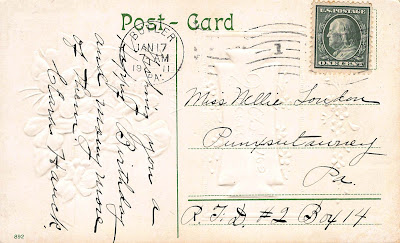 Post-Card
BUTLER
JAN 17
7 AM
PA.
1
U.S. POSTAGE
ONE CENT
Wishing you a
Happy Birthday
and many more
of them
Clara Hauck.
Miss Nellie London
Punxsutawney
Pa.
R.F.D. #2 Box 14
892